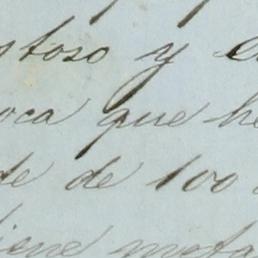 stoso y e
oca que he
te de 100
iene meta